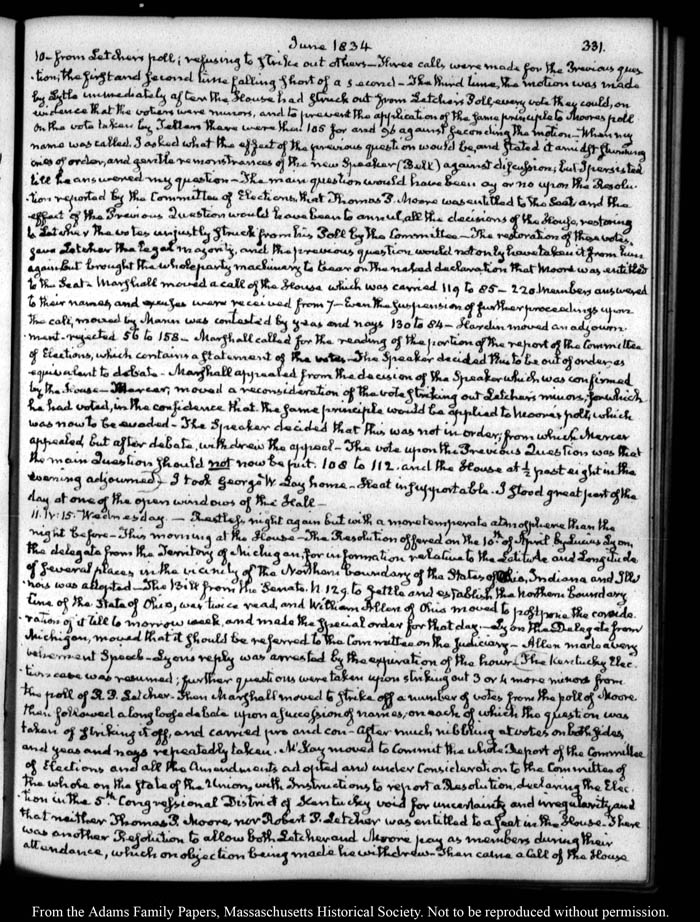 June 1834
331.
10 from Letcher's poll; refusing to strike out others – Three calls were made for the Previous ques
tion; the first and second time falling short of a second – The third time, the motion was made
by Lytle immediately after the House had struck out from Letcher's Poll every vote they could, on
evidence that the voters were minors, and to prevent the application of the same principle to Moore's poll
On the vote taken by Tellers there were then 105 for and 98 against seconding the motion – When my
name was called, I asked what the effect of the previous question would be, and stated it amidst stunning
cries of order, and gentle remonstrances of the new Speaker (Bell) against discussion; but I persisted
till he answered my question – The main question would have been ay or no upon the Resolu
tion reported by the Committee of Elections, that Thomas P. Moore was entitled to the Seat and the
effect of the Previous Question would have been to annul, all the decisions of the House, restoring
to Letcher the votes unjustly struck from his Poll by the Committee – The restoration of these votes,
gave Letcher the legal majority, and the previous question would not only have taken it from him
again but brought the whole party machinery to bear on the naked declaration that Moore was entitled
to the Seat – Marshall moved a call of the House which was carried 119 to 85 – 220 Members answered
to their names, and excuses were received from 7 – Even the suspension of further proceedings upon
the call, moved by Mann was contested by yeas and nays 130 to 84 – Hardin moved an adjourn
ment – rejected 56 to 158 – Marshall called for the reading of the portion of the report of the Committee
of Elections, which contains a statement of the votes – The Speaker decided this to be out of order, as
equivalent to debate – Marshall appealed from the decision of the Speaker which was confirmed
by the House – Mercer, moved a reconsideration of the vote striking out Letcher's minors, for which
he had voted, in the confidence that the same principle would be applied to Moore's poll, which
was now to be evaded – The Speaker decided that this was not in order; from which Mercer
appealed, but after debate, withdrew the appeal – The vote upon the Previous Question was that
the main Question should not now be put. 108 to 112. and the House at ½ past eight in the
evening adjourned) I took George W. Lay home – Heat insupportable. I stood great part of the
day at one of the open windows of the Hall –
11. IV:15. Wednesday. – Restless night again but with a more temperate atmosphere than the
night before – This morning at the House – The Resolution offered on the 10th of April by Lucius Lyon,
the delegate from the Territory of Michigan, for information relative to the Latitude and Longitude
of several places, in the vicinity of the Northern boundary of the States of Ohio, Indiana and Illi
nois was adopted – The Bill from the Senate. N 129 to settle and establish the Northern boundary
line of the State of Ohio, was twice read, and William Allen of Ohio moved to postpone the conside
ration of it till to morrow week, and made the special order for that day. – Lyon the Delegate from
Michigan, moved that it should be referred to the Committee on the Judiciary – Allen made a very
vehement Speech – Lyon's reply was arrested by the expiration of the hour – The Kentucky Elec
tion case was resumed; further questions were taken upon striking out 3 or 4 more minors from
the poll of R. P. Letcher. Then Marshall moved to strike off a number of votes from the poll of Moore
then followed a long loose debate upon a succession of names, on each of which the question was
taken of striking it off, and carried pro and con – After much nibbling at votes on both sides,
and yeas and nays repeatedly taken. McKay moved to Commit the whole Report of the Committee
of Elections and all the Amendments adopted and under Consideration to the Committee of
the whole on the state of the Union, with Instructions to report a Resolution, declaring the Elec
tion in the 5th Congressional District of Kentucky void for uncertainty and irregularity, and
that neither Thomas P. Moore, nor Robert P. Letcher was entitled to a seat in the House. There
was another Resolution to allow both Letcher and Moore pay as members during their
attendance, which on objection being made he withdrew – Then came a Call of the House
From the Adams Family Papers, Massachusetts Historical Society. Not to be reproduced without permission.